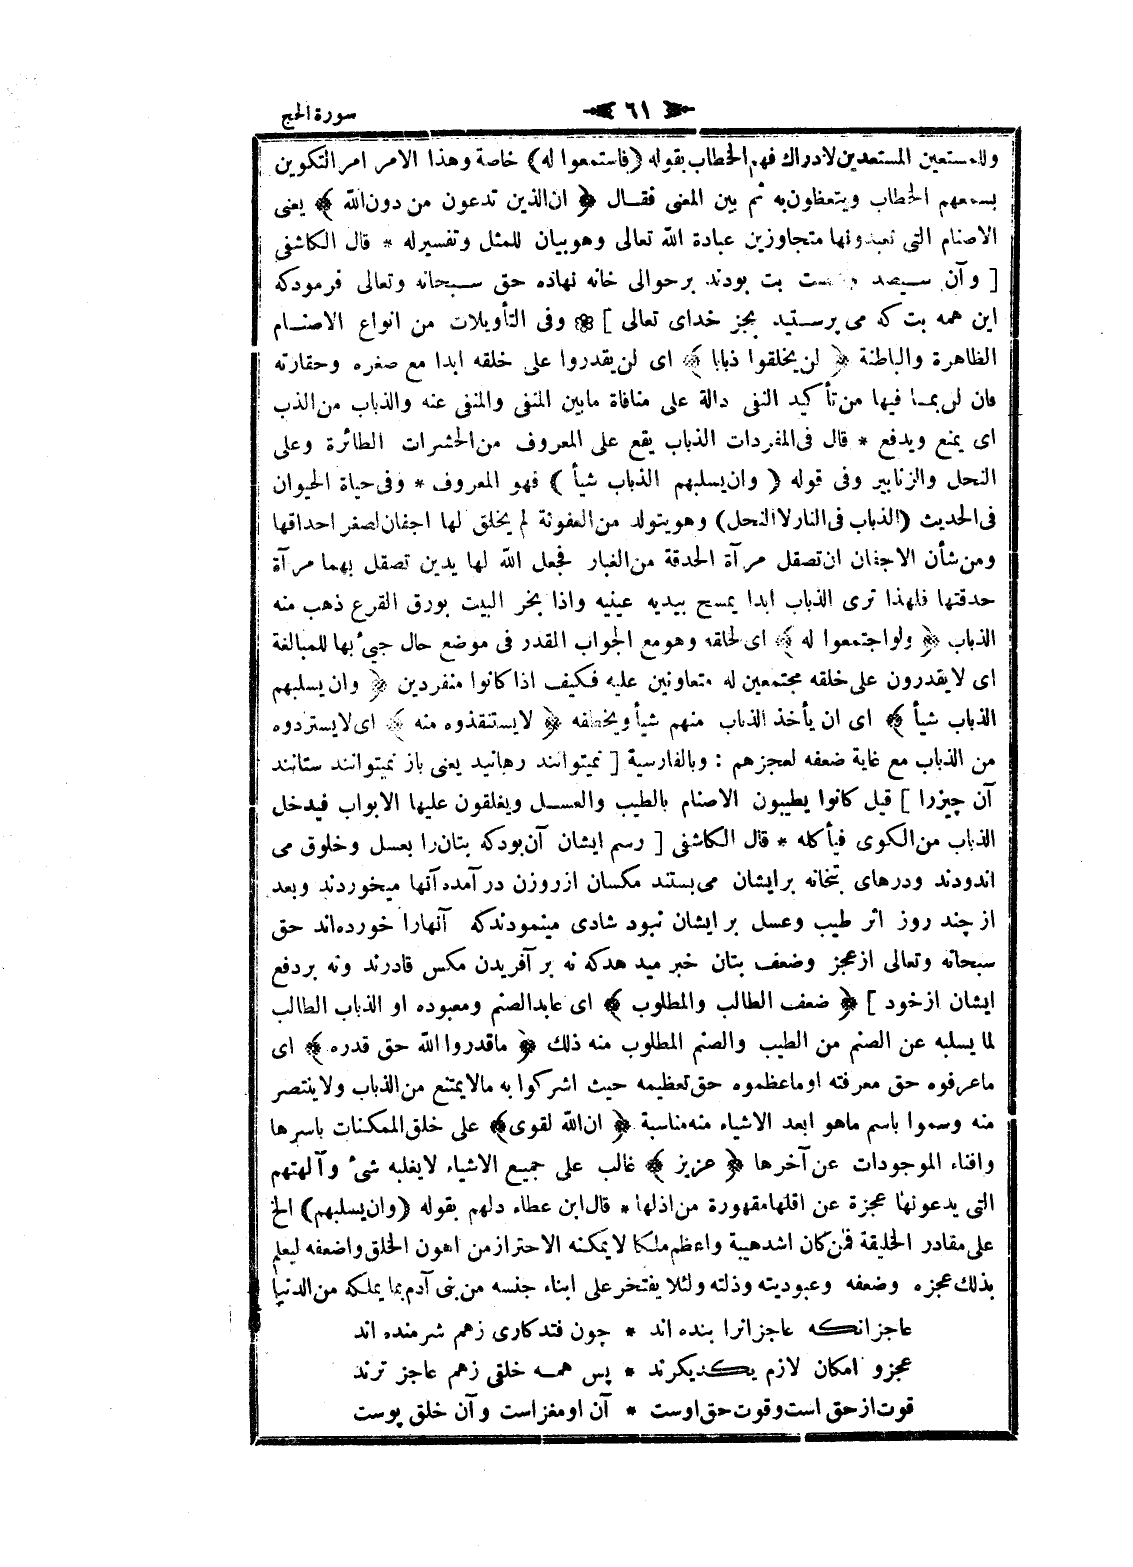 سورة الحج
٦١
وللمستعين المستعدين لادراك فهم الخطاب بقوله (فاستمعوا له) خاصة وهذا الامر امر التكوين
يسمعهم الخطاب ويتعظون به ثم بين المعنى فقال ﴿ ان الذين تدعون من دون الله ﴾ يعنى
الاصنام التى تعبدونها متجاوزين عبادة الله تعالى وهو بيان للمثل وتفسير له * قال الكاشفى
[ وآن سيصد وشصت بت بودند برحوالى خانه نهاده حق سبحانه وتعالى فرمودكه
اين همه بت كه مى پرستيد بجز خداى تعالى ] ❁ وفى التأويلات من انواع الاصنام
الظاهرة والباطنة ﴿ لن يخلقوا ذبابا ﴾ اى لن يقدروا على خلقه ابدا مع صغره وحقارته
فان لن بما فيها من تأكيد النفى دالة على منافاة مابين المنفى والمنفى عنه والذباب من الذب
اى يمنع ويدفع * قال فى المفردات الذباب يقع على المعروف من الحشرات الطائرة وعلى
النحل والزنابير وفى قوله ( وان يسلبهم الذباب شيأ ) فهو المعروف * وفى حياة الحيوان
فى الحديث (الذباب فى النار لا النحل) وهو يتولد من العفونة لم يخلق لها اجفان لصغر احداقها
ومن شأن الاجفان ان تصقل مرآة الحدقة من الغبار فجعل الله لها يدين تصقل بهما مرآة
حدقتها فلهذا ترى الذباب ابدا يمسح بيديه عينيه واذا بخر البيت بورق القرع ذهب منه
الذباب ﴿ ولو اجتمعوا له ﴾ اى لخلقه وهو مع الجواب المقدر فى موضع حال جىء بها للمبالغة
اى لا يقدرون على خلقه مجتمعين له متعاونين عليه فكيف اذا كانوا منفردين ﴿ وان يسلبهم
الذباب شيأ ﴾ اى ان يأخذ الذباب منهم شيأ ويخطفه ﴿ لا يستنقذوه منه ﴾ اى لا يستردوه
من الذباب مع غاية ضعفه لعجزهم : وبالفارسية [ نميتوانند رهانيد يعنى باز نميتوانند ستانند
آن چيزرا ] قيل كانوا يطيبون الاصنام بالطيب والعسل ويغلقون عليها الابواب فيدخل
الذباب من الكوى فيأكله * قال الكاشفى [ رسم ايشان آن بودكه بتان را بعسل وخلوق مى
اندودند ودرهاى بتخانه بر ايشان مى بستند مكسان از روزن در آمده آنها ميخوردند وبعد
از چند روز اثر طيب وعسل بر ايشان نبود شادى مينمودندكه آنهارا خورده اند حق
سبحانه وتعالى از عجز وضعف بتان خبر ميدهدكه نه بر آفريدن مكس قادرند ونه بر دفع
ايشان از خود ] ﴿ ضعف الطالب والمطلوب ﴾ اى عابد الصنم ومعبوده او الذباب الطالب
لما يسلبه عن الصنم من الطيب والصنم المطلوب منه ذلك ﴿ ماقدروا الله حق قدره ﴾ اى
ماعرفوه حق معرفته او ماعظموه حق تعظيمه حيث اشركوا به مالا يمتنع من الذباب ولا ينتصر
منه وسموا باسم ماهو ابعد الاشياء منه مناسبة ﴿ ان الله لقوى ﴾ على خلق الممكنات باسرها
وافناء الموجودات عن آخرها ﴿ عزيز ﴾ غالب على جميع الاشياء لا يغلبه شىء وآلهتهم
التى يدعونها عجزة عن اقلها مقهورة من اذلها * قال ابن عطاء دلهم بقوله (وان يسلبهم) الخ
على مقادر الخليقة فمن كان اشد هيبة واعظم ملكا لا يمكنه الاحتراز من اهون الخلق واضعفه ليعلم
بذلك عجزه وضعفه وعبوديته وذلته ولئلا يفتخر على ابناء جنسه من بنى آدم بما يملكه من الدنيا
عاجز انكه عاجز انرا بنده اند * چون فتد كارى زهم شرمنده اند
عجز و امكان لازم يكديكرند * پس همه خلقى زهم عاجز ترند
قوت از حق است وقوت حق اوست * آن او مغز است وآن خلق پوست